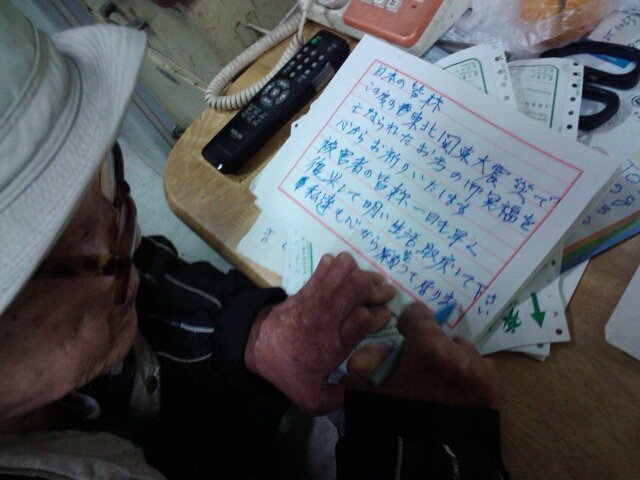 日本の皆様
この度の東北関東大震災で
亡なられたお方の御冥福を
心からお祈りいたします
被害者の皆様一日も早く
復光して明い生活取戻して下さい
私達も心から願って居りま